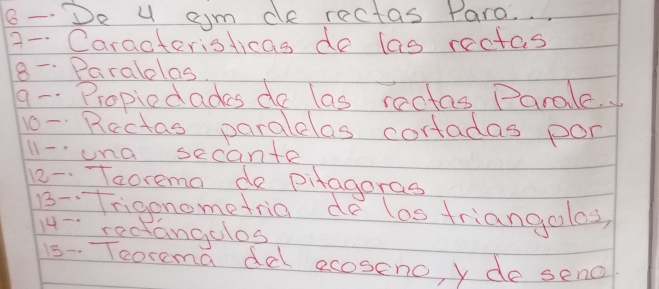 6-. De 4 ejm de rectas Para....
7-. Caracteristicas de las rectas
8-. Paralelas.
9-. Propiedades de las rectas Parale..
10-. Rectas paralelas cortadas por
11-. una secante
12-. Teorema de Pitagoras
13-. Trigonometria de los triangulos,
14-. rectángulos
15-. Teorema del ecoseno, y de seno.